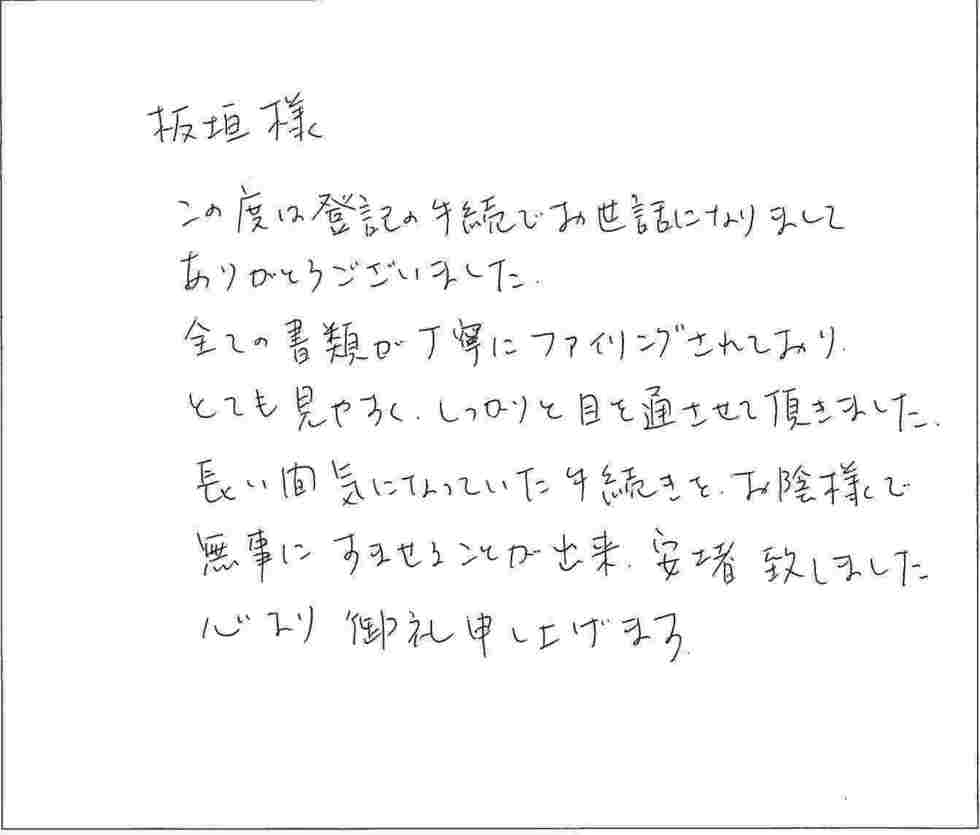 板垣様
この度は登記の手続でお世話になりまして
ありがとうございました.
全ての書類が丁寧にファイリングされており、
とても見やすく、しっかりと目を通させて頂きました.
長い間気になっていた手続きを、お陰様で
無事にすませることが出来、安堵致しました
心より御礼申し上げます.